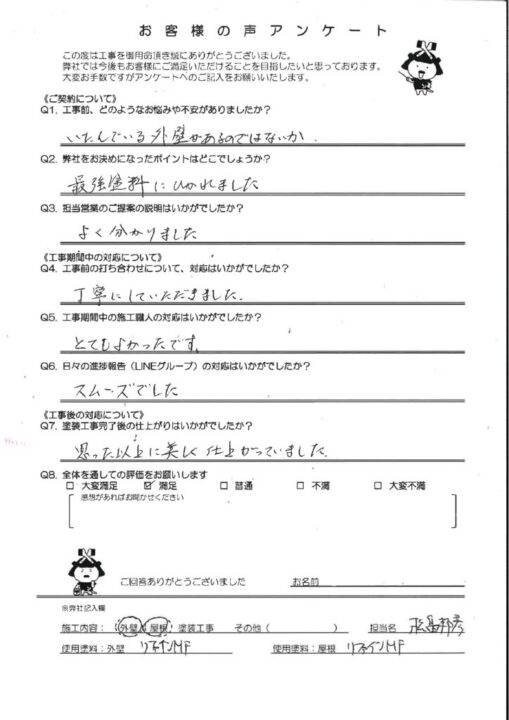 お客様の声アンケート
この度は工事を御用命頂き誠にありがとうございました。
弊社では今後もお客様にご満足いただけることを目指したいと思っております。
大変お手数ですがアンケートへのご記入をお願いいたします。
《ご契約について》
Q1. 工事前、どのようなお悩みや不安がありましたか?
いたんでいる外壁があるのではないか.
Q2. 弊社をお決めになったポイントはどこでしょうか?
最強塗料にひかれました
Q3. 担当営業のご提案の説明はいかがでしたか?
よく分かりました
《工事期間中の対応について》
Q4. 工事前の打ち合わせについて、対応はいかがでしたか?
丁寧にしていただきました.
Q5. 工事期間中の施工職人の対応はいかがでしたか?
とてもよかったです。
Q6. 日々の進捗報告(LINEグループ)の対応はいかがでしたか?
スムーズでした
《工事後の対応について》
Q7. 塗装工事完了後の仕上がりはいかがでしたか?
思った以上に美しく仕上がっていました.
Q8. 全体を通しての評価をお願いします
□ 大変満足 ☑ 満足 □ 普通 □ 不満 □ 大変不満
感想があればお聞かせください
ご回答ありがとうございました お名前
※弊社記入欄
施工内容: 外壁 屋根 塗装工事 その他( ) 担当名
使用塗料:外壁 リファインMF 使用塗料:屋根 リファインMF